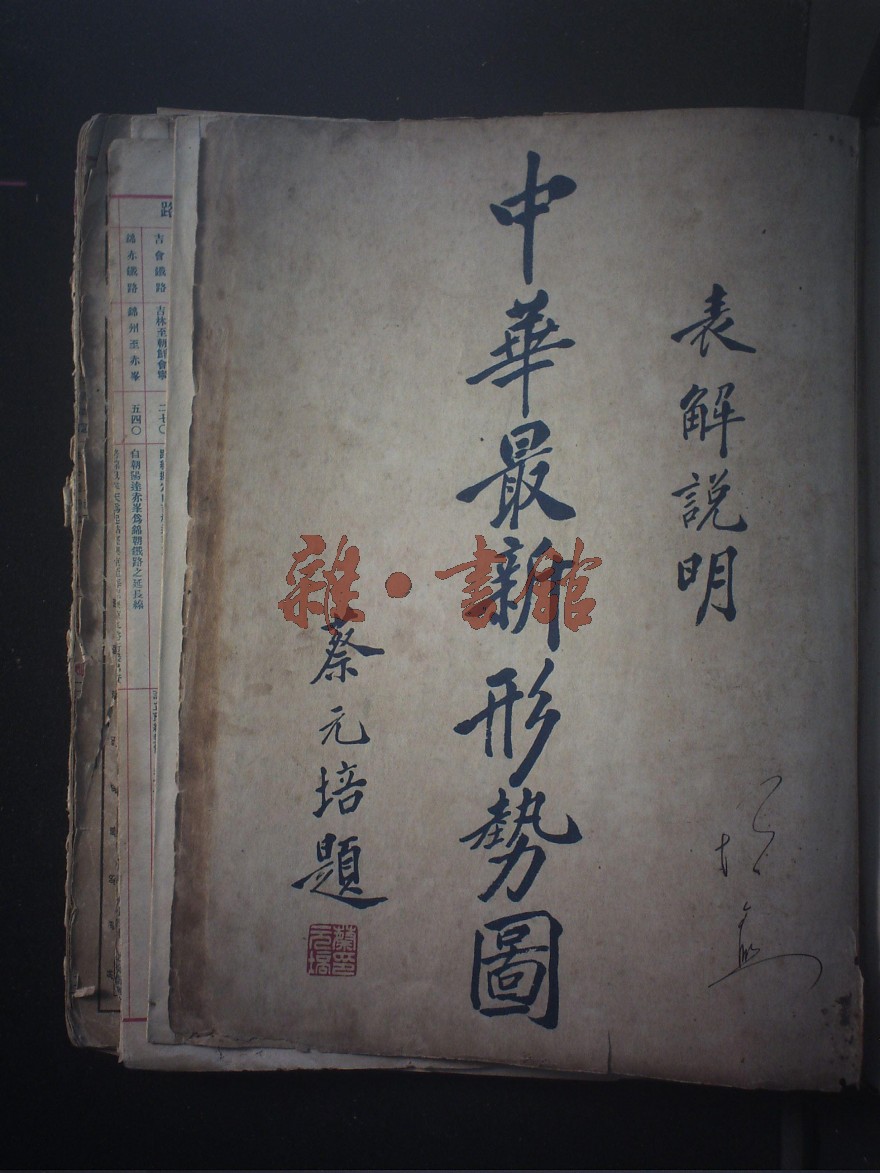 表解說明
中華最新形勢圖
蔡元培題
雜·書館
路
吉會鐵路 吉林至朝鮮會寧 二七〇
錦赤鐵路 錦州至赤峯 五四〇 自朝陽達赤峯爲錦朝鐵路之延長線